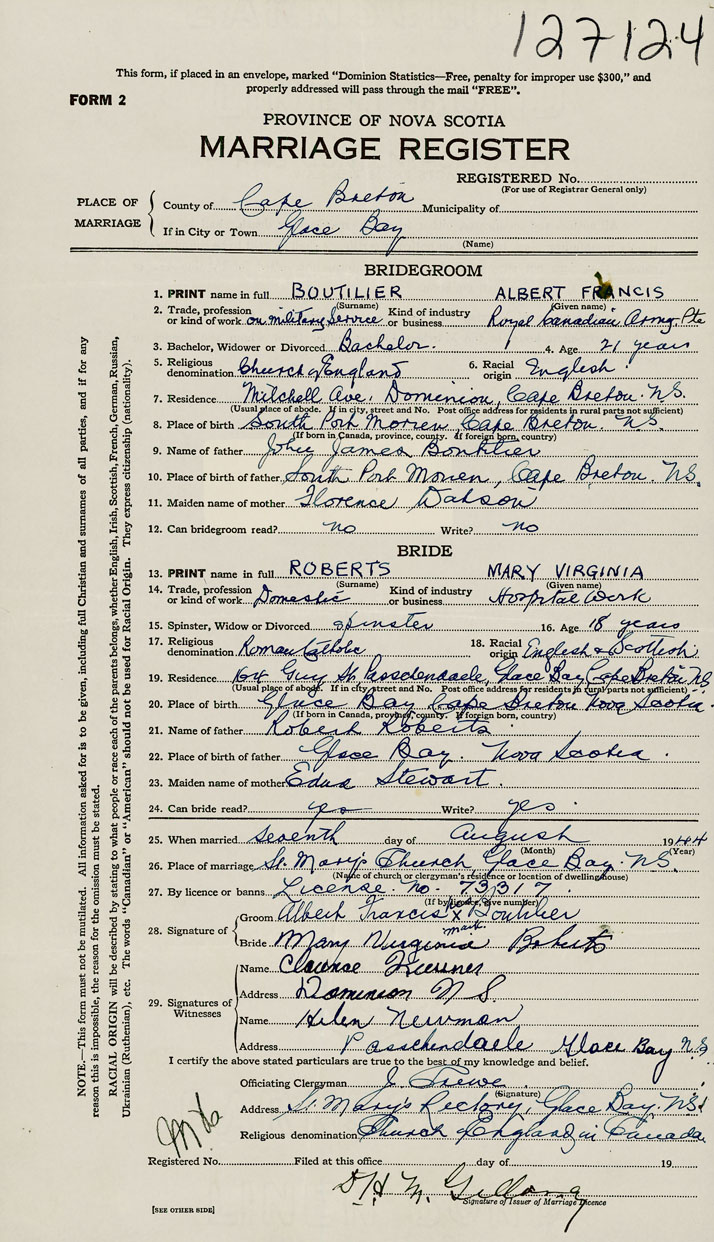 127124
This form, if placed in an envelope, marked "Dominion Statistics—Free, penalty for improper use $300," and
properly addressed will pass through the mail "FREE".
FORM 2
PROVINCE OF NOVA SCOTIA
MARRIAGE REGISTER
REGISTERED No.
(For use of Registrar General only)
PLACE OF MARRIAGE
County of Cape Breton Municipality of
If in City or Town Glace Bay
(Name)
BRIDEGROOM
1. PRINT name in full BOUTILIER ALBERT FRANCIS
(Surname) (Given name)
2. Trade, profession or kind of work on military Service Kind of industry or business Royal Canadian Army. Pte
3. Bachelor, Widower or Divorced Bachelor. 4. Age 21 years
5. Religious denomination Church of England 6. Racial origin English.
7. Residence Mitchell Ave. Dominion, Cape Breton. N.S.
(Usual place of abode. If in city, street and No. Post office address for residents in rural parts not sufficient)
8. Place of birth South Port Morien, Cape Breton. N.S.
(If born in Canada, province, county. If foreign born, country)
9. Name of father John James Boutilier
10. Place of birth of father South Port Morien, Cape Breton. N.S.
11. Maiden name of mother Florence Datson
12. Can bridegroom read? no Write? no
BRIDE
13. PRINT name in full ROBERTS MARY VIRGINIA
(Surname) (Given name)
14. Trade, profession or kind of work Domestic Kind of industry or business Hospital Work
15. Spinster, Widow or Divorced spinster 16. Age 18 years
17. Religious denomination Roman Catholic 18. Racial origin English & Scottish
19. Residence Guy St. Passchendaele, Glace Bay Cape Breton N.S.
(Usual place of abode. If in city, street and No. Post office address for residents in rural parts not sufficient)
20. Place of birth Glace Bay Cape Breton Nova Scotia.
(If born in Canada, province, county. If foreign born, country)
21. Name of father Robert Roberts
22. Place of birth of father Glace Bay. Nova Scotia.
23. Maiden name of mother Edna Stewart.
24. Can bride read? yes Write? yes.
25. When married Seventh day of August 1944
(Month) (Year)
26. Place of marriage St. Mary's Church Glace Bay. N.S.
(Name of church or clergyman's residence or location of dwelling house)
27. By licence or banns License. No. 73317.
(If by licence, give number)
28. Signature of
Groom Albert Francis his X mark Boutilier
Bride Mary Virginia Roberts
29. Signatures of Witnesses
Name Clarence
Address Dominion N S.
Name Helen Newman
Address Passchendaele Glace Bay N.S.
I certify the above stated particulars are true to the best of my knowledge and belief.
Officiating Clergyman J. Trewe
(Signature)
Address St. Mary's Rectory, Glace Bay. N.S.
Religious denomination Church of England in Canada.
Registered No. Filed at this office day of 19
Signature of Issuer of Marriage Licence
[SEE OTHER SIDE]
NOTE.—This form must not be mutilated. All information asked for is to be given, including full Christian and surnames of all parties, and if for any
reason this is impossible, the reason for the omission must be stated.
RACIAL ORIGIN will be described by stating to what people or race each of the parents belongs, whether English, Irish, Scottish, French, German, Russian,
Ukrainian (Ruthenian), etc. The words "Canadian" or "American" should not be used for Racial Origin. They express citizenship (nationality).